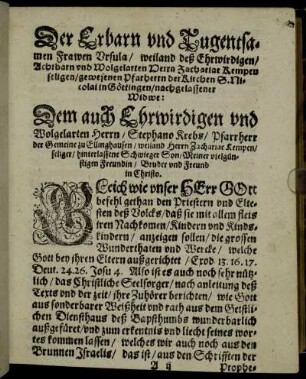 Der Erbarn vnd Tugentsa-
men Frawen Vrsula / weiland deß Ehrwirdigen /
Achtbarn vnd Wolgelarten Herrn Zachariae Kempen
seligen / gewesenen Pfarherrn der Kirchen S. Ni-
colai in Göttingen / nachgelassener
Widwe:
Dem auch Ehrwirdigen vnd
Wolgelarten Herrn / Stephano Krebs / Pfarrherr
der Gemeine zu Ellinghausen / weiland Herrn Zachariae Kempen /
seliger / hinterlassene Schwieger Son / Meiner vielgün-
stigen Freundin / Bruder vnd Freund
in Christo.
GLeich wie vnser HErr GOtt
befehl gethan den Priestern vnd Elte-
sten deß Volcks / daß sie mit allem fleis
jren Nachkomen / Kindern vnd Kinds-
kindern / anzeigen sollen / die grossen
Wunderthaten vnd Wercke / welche
Gott bey ihren Eltern außgerichtet / Exod 13. 16. 17.
Deut. 24. 26. Josu 4. Also ist es auch noch sehr nütz-
lich / das Christliche Seelsorger / nach anleitung deß
Texts vnd der zeit / ihre Zuhörer berichten / wie Gott
aus sonderbarer Weißheit vnd rath aus dem Geistli-
chen Diensthaus deß Bapsthumbs wunderbarlich
außgefüret / vnd zum erkentnis vnd liecht seines wor-
tes kommen lassen / welches wir auch noch aus den
Brunnen Israelis / das ist / aus den Schrifften der
A ij Prophe-